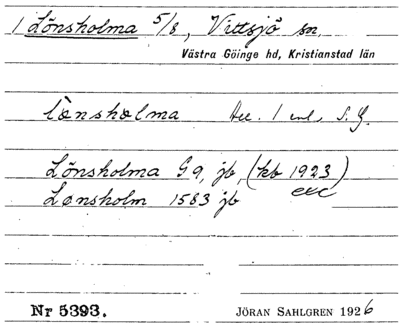 1 Lönsholma 5/8, Vittsjö sn,
Västra Göinge hd, Kristianstad län
lònshælma Acc. 1 enl. S. G.
Lönsholma G9, jb, (kb 1923)
exc
Lønsholm 1583 jb
Nr 5393. JÖRAN SAHLGREN 1926